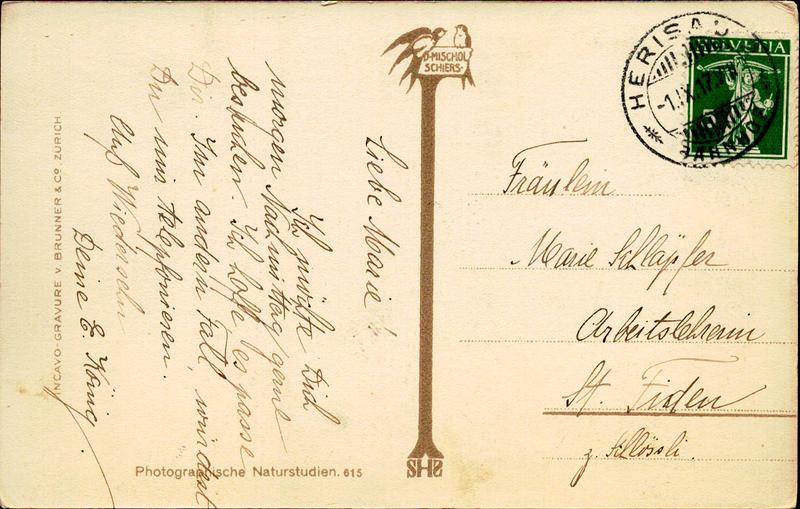 Liebe Marie!
Ich möchte Dich
morgen Nachmittag gerne
besuchen. Ich hoffe es passe
Dir. Im andern Fall, würdest
Du mir telephonieren.
Auf Wiedersehn
Deine E. König.
INCAVO-GRAVURE v. BRUNNER & Co. ZÜRICH
Photographische Naturstudien. 615
D-MISCHOL
SCHIERS-
SHS
HERISAU
-1.IX.17.
HELVETIA
Fräulein
Marie Schläpfer
Arbeitslehrerin
St. Fiden
z. Schlössli.